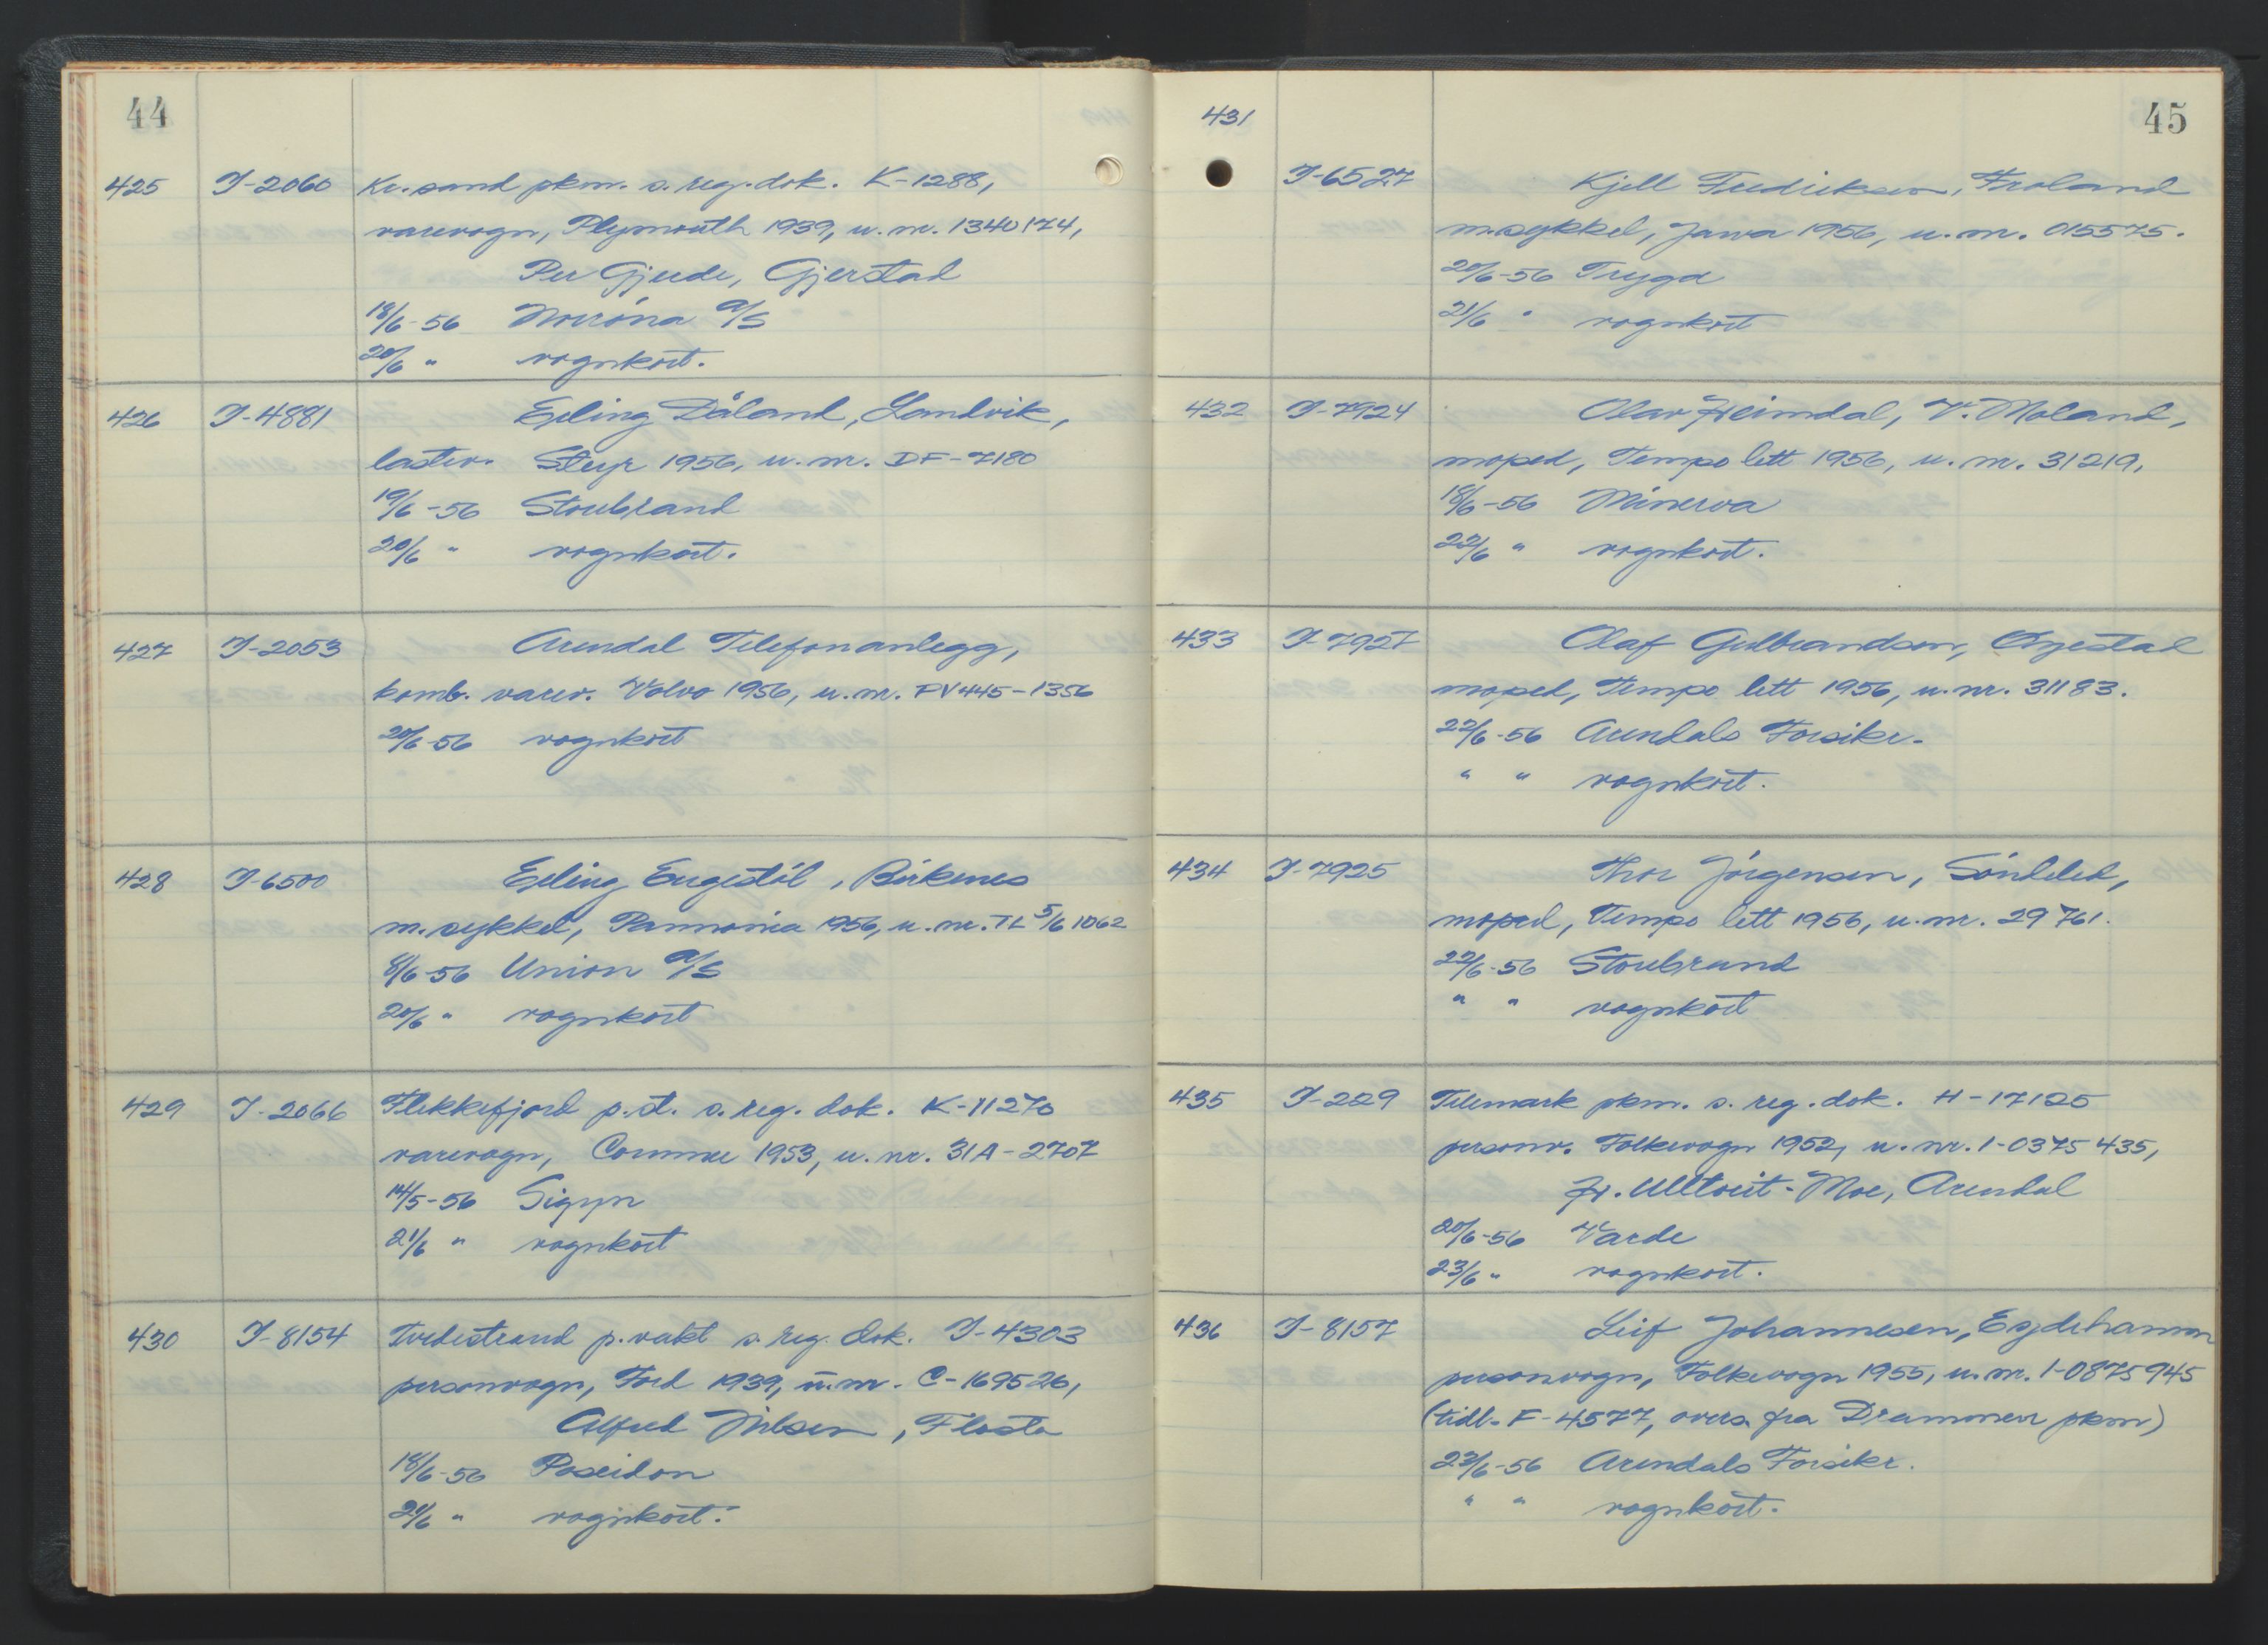 44
425 I-2060 Kr.sand pkm. s. reg. dok. K-1288,
varevogn, Plymouth 1939, u. nr. 1340174,
Per Gjerde, Gjerstad
18/6-56 Norröna a/s
20/6 " vognkort.
426 I-4881 Erling Dåland, Landvik,
lastev. Steyr 1956, u. nr. DF-7180
19/6-56 Storebrand
20/6 " vognkort.
427 I-2053 Arendal Telefonanlegg,
komb. varev. Volvo 1956, u. nr. PV445-1356
20/6-56 vognkort
428 I-6500 Erling Engestöl, Birkenes
m.sykkel, Pannonia 1956, u. nr. TL 5/6 1062
8/6-56 Union a/s
20/6 " vognkort
429 I-2066 Flekkefjord p.st. s. reg. dok. K-11270
varevogn, Commer 1953, u. nr. 31A-2707
14/5-56 Sigyn
21/6 " vognkort
430 I-8154 Tvedestrand p.vakt s. reg. dok. I-4303
personvogn, Ford 1939, u. nr. C-169526,
Alfred Nilsen, Flosta
18/6-56 Poseidon
21/6 " vognkort.
45
431
I-6527 Kjell Fredriksen, Froland
m.sykkel, Jawa 1956, u. nr. 015575.
20/6-56 Trygd
21/6 " vognkort
432 I-7924 Olav Heimdal, V. Moland,
moped, Tempo lett 1956, u. nr. 31219,
18/6-56 Minerva
22/6 " vognkort.
433 I-7927 Olaf Gulbrandsen, Öyestad
moped, Tempo lett 1956, u. nr. 31183.
22/6-56 Arendals Forsikr.
" " vognkort.
434 I-7925 Thor Jörgensen, Söndeled,
moped, Tempo lett 1956, u. nr. 29761.
22/6-56 Storebrand
" " vognkort
435 I-229 Telemark pkm. s. reg. dok. H-17125
personv. Folkevogn 1952, u. nr. 1-0375435,
Fr. Ulltveit-Moe, Arendal
20/6-56 Varde
23/6 " vognkort.
436 I-8157 Leif Johannesen, Eydehamn
personvogn, Folkevogn 1955, u. nr. 1-0875945
(tidl. F-4577, overs. fra Drammen pkm)
23/6-56 Arendals Forsikr.
" " vognkort.